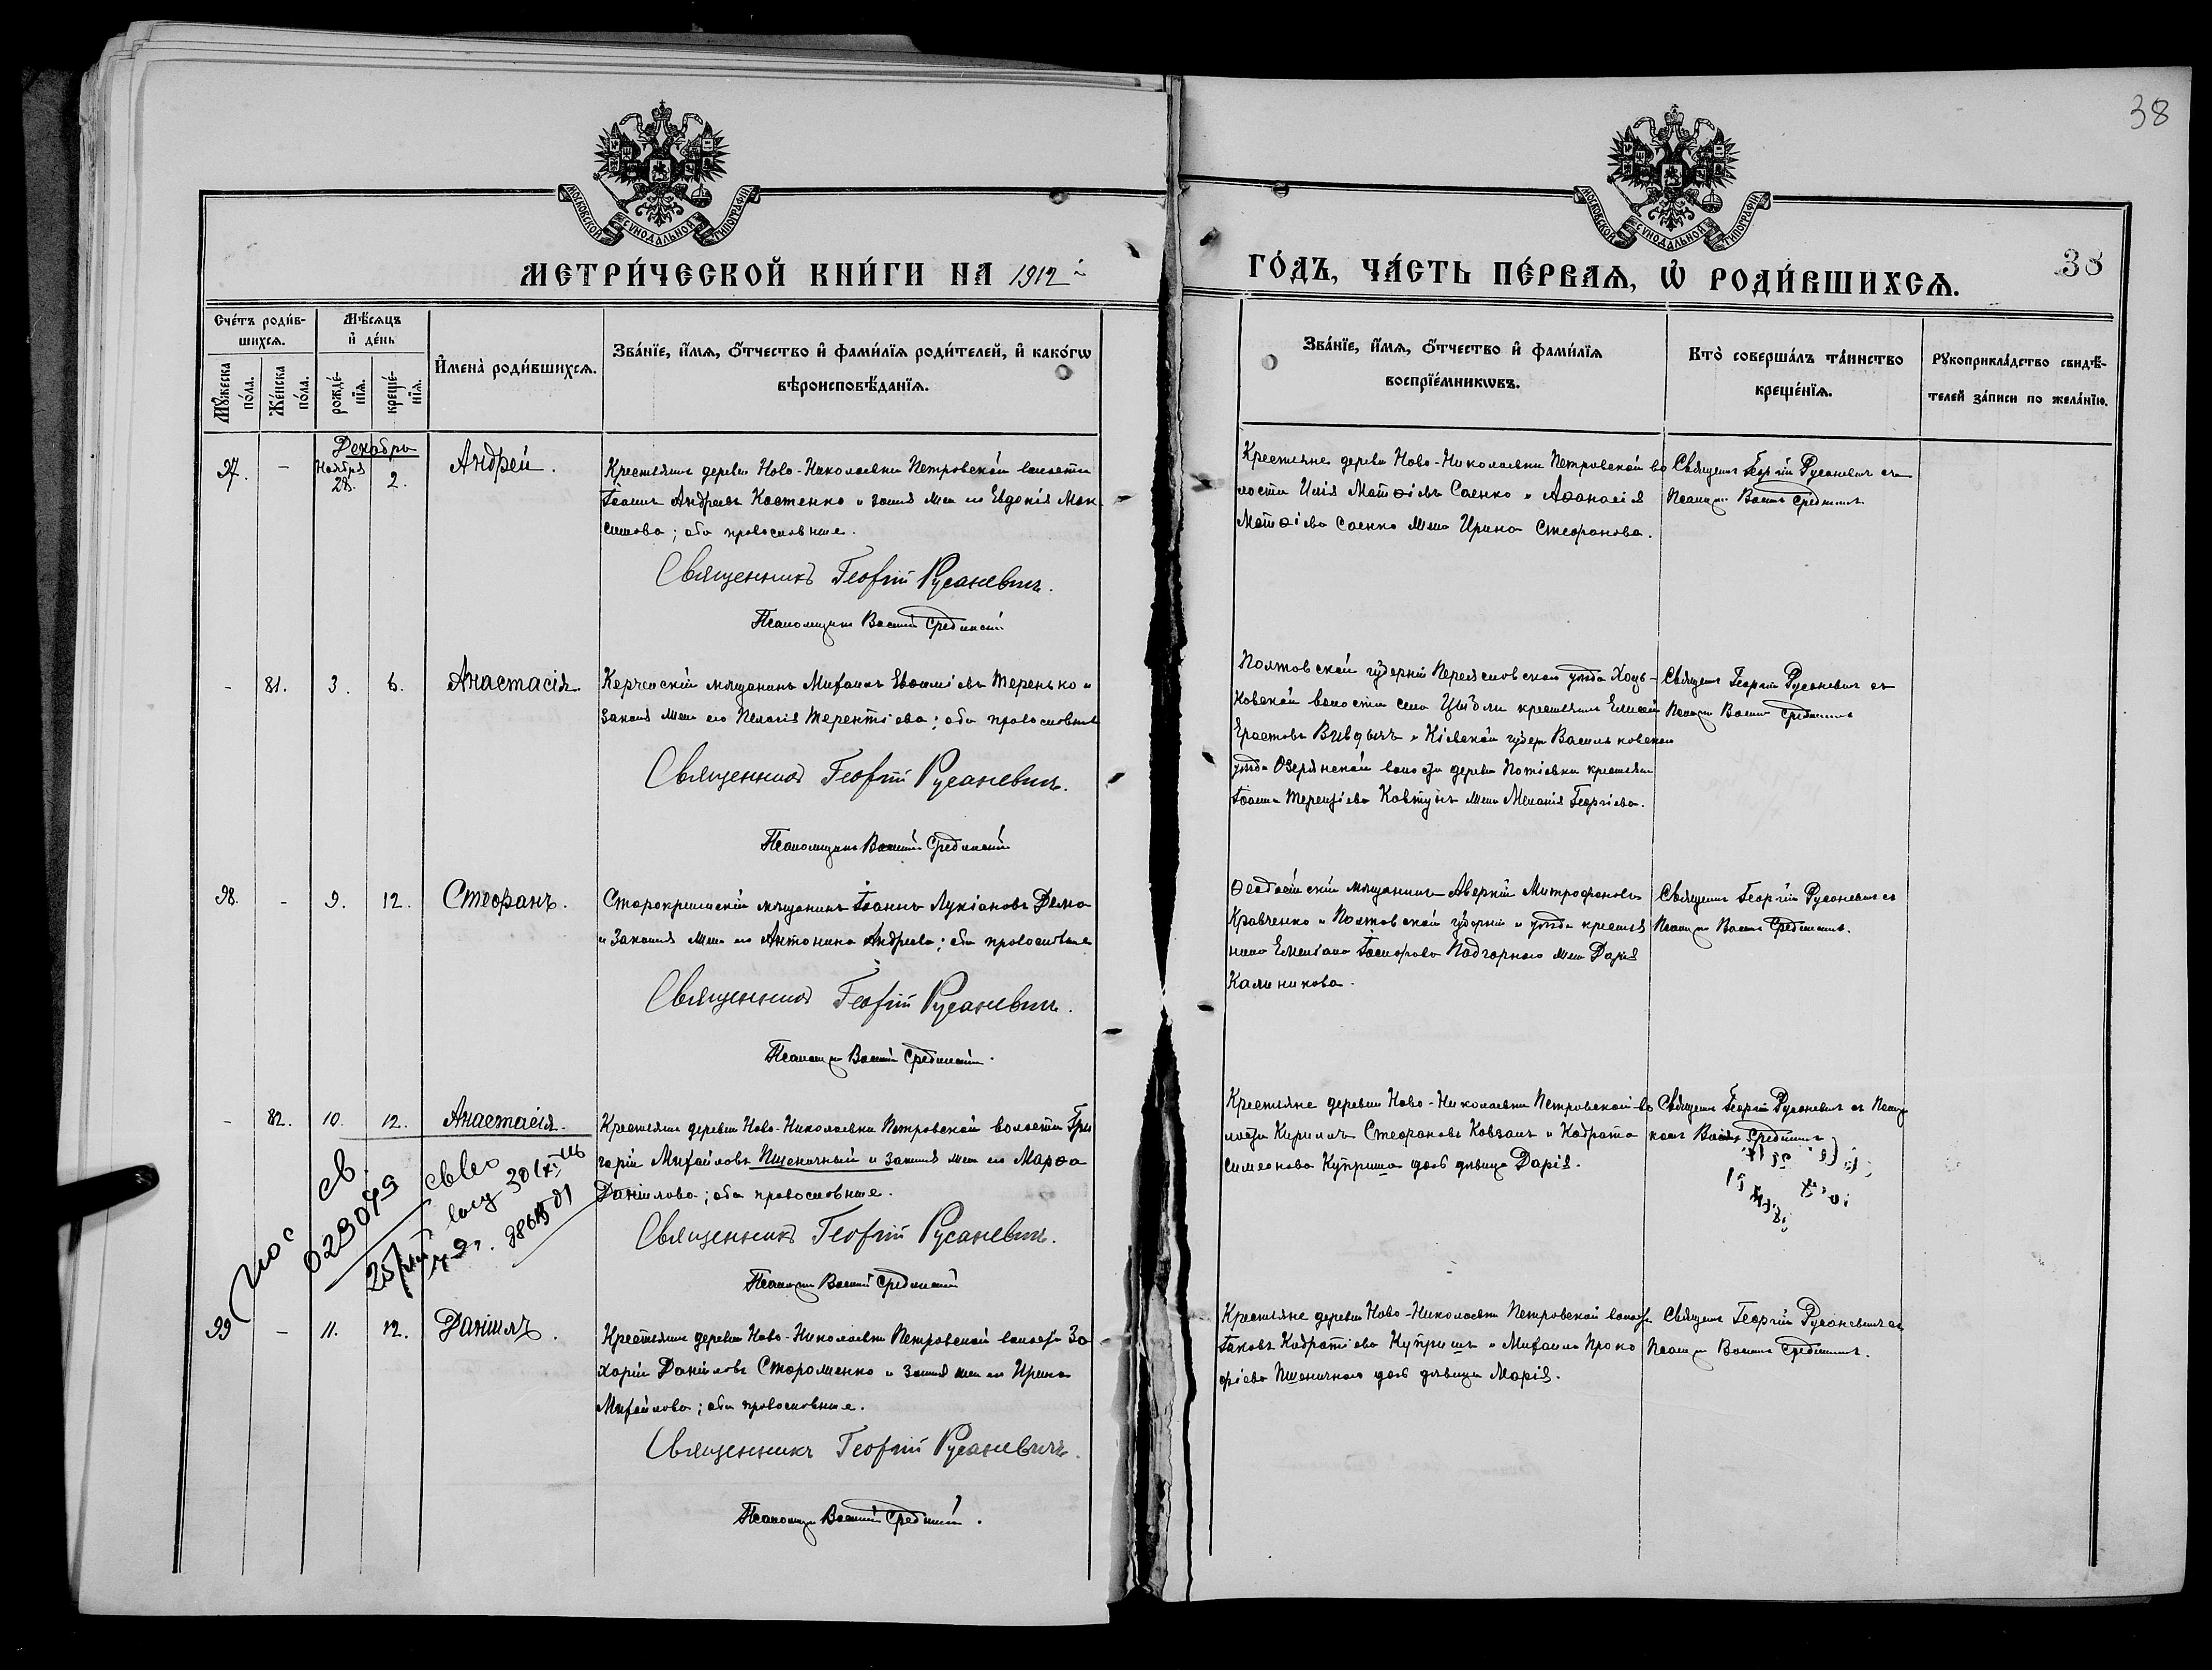 38
МОСКОВСКОЙ СѴНОДАЛЬНОЙ ТИПОГРАФІИ
МОСКОВСКОЙ СѴНОДАЛЬНОЙ ТИПОГРАФІИ
МЕТРИ́ЧЕСКОЙ КНИ́ГИ НА 1912 й
ГО́ДЪ, ЧА́СТЬ ПЕ́РВАѦ, Ѽ РОДИ́ВШИХСѦ.
38
Сче́тъ роди́в-
шихсѧ.
Мѣ́сѧцъ
и҆ де́нь
Мꙋ́жеска по́ла.
Же́нска по́ла.
рожде́-нїѧ.
креще́-нїѧ.
И҆мена̀ роди́вшихсѧ.
Зва́нїе, и҆́мѧ, ѻ҆́тчество и҆ фами́лїѧ роди́телей, и҆ како́гѡ
вѣроисповѣ́данїѧ.
Зва́нїе, и҆́мѧ, ѻ҆́тчество и҆ фами́лїѧ
воспрїе́мникѡвъ.
Кто̀ соверша́лъ та́инство
креще́нїѧ.
Рꙋкоприкла́дство свидѣ́-
телей за́писи по жела́нїю.
Декабрь
97. - Ноября 28. 2. Андрей.
Крестьянинъ деревни Ново-Николаевки Петровской волости
Іоаннъ Андреевъ Костенко и законная жена его Евдокія Мак
симова; оба православные.
Священникъ Георгій Русаневичъ.
Псаломщикъ Василій Срединскій
Крестьяне деревни Ново-Николаевки Петровской во
лости Илія Матѳіевъ Саенко и Аѳанасія
Матѳіева Саенко жена Ирина Стефанова.
Священникъ Георгій Русаневичъ съ
Псаломщ. Василіемъ Срединскимъ
- 81. 3. 6. Анастасія.
Керченскій мѣщанинъ Михаилъ Евѳиміевъ Теренько и
законная жена его Пелагія Терентіева; оба православные
Священникъ Георгій Русаневичъ.
Псаломщикъ Василій Срединскій
Полтовской губерніи Переяславскаго уѣзда Хоць-
ковской волости села крестьянинъ Елисей
Ерастовъ и Кіевской губер Васильковскаго
уѣзда Озерянской волости деревни Потіевки крестьян
Іоанна Терентіева Ковтунъ жена Меланія Георгіева.
Священникъ Георгій Русаневичъ съ
Псаломщ Василіемъ Срединскимъ
98. - 9. 12. Стефанъ.
Старокрымскій мѣщанинъ Іоаннъ Лукіановъ
и законная жена его Антонина Андреева; оба православные
Священникъ Георгій Русаневичъ.
Псаломщ Василій Срединскій.
Ѳеодосійскій мѣщанинъ Аверкій Митрофановъ
Кравченко и Полтовской губерніи и уѣзда крестья
нина Емеліана Подгорнаго жена Дарія
Калиникова.
Священникъ Георгій Русаневичъ съ
Псаломщ Василіемъ Срединскимъ.
- 82. 10. 12. Анастасія.
Крестьянинъ деревни Ново-Николаевки Петровской волости Гри
горій Михайловъ Пшеничный и законная жена его Марѳа
Даніилова; оба православные.
Священникъ Георгій Русаневичъ.
Псаломщ Василій Срединскій
Крестьяне деревни Ново-Николаевки Петровской во
лости Кириллъ Стефановъ Ковзанъ и Кодрата
Симеонова Куприша дочь дѣвица Дарія.
Священникъ Георгій Русаневичъ съ Псаломщ
комъ Василіемъ Срединскимъ
св.
029049
99 - 11. 12. Даніилъ.
Крестьянинъ деревни Ново-Николаевки Петровской волости За
харій Даніиловъ Стороженко и законная жена его Ирина
Михайлова; оба православные.
Священникъ Георгій Русаневичъ.
Псаломщ Василій Срединскій.
Крестьяне деревни Ново-Николаевки Петровской волости
Іаковъ Кодратіевъ Купришъ и Михаила Проко
фіева Пшеничнаго дочь дѣвица Марія.
Священникъ Георгій Русаневичъ съ
Псаломщ Василіемъ Срединскимъ.